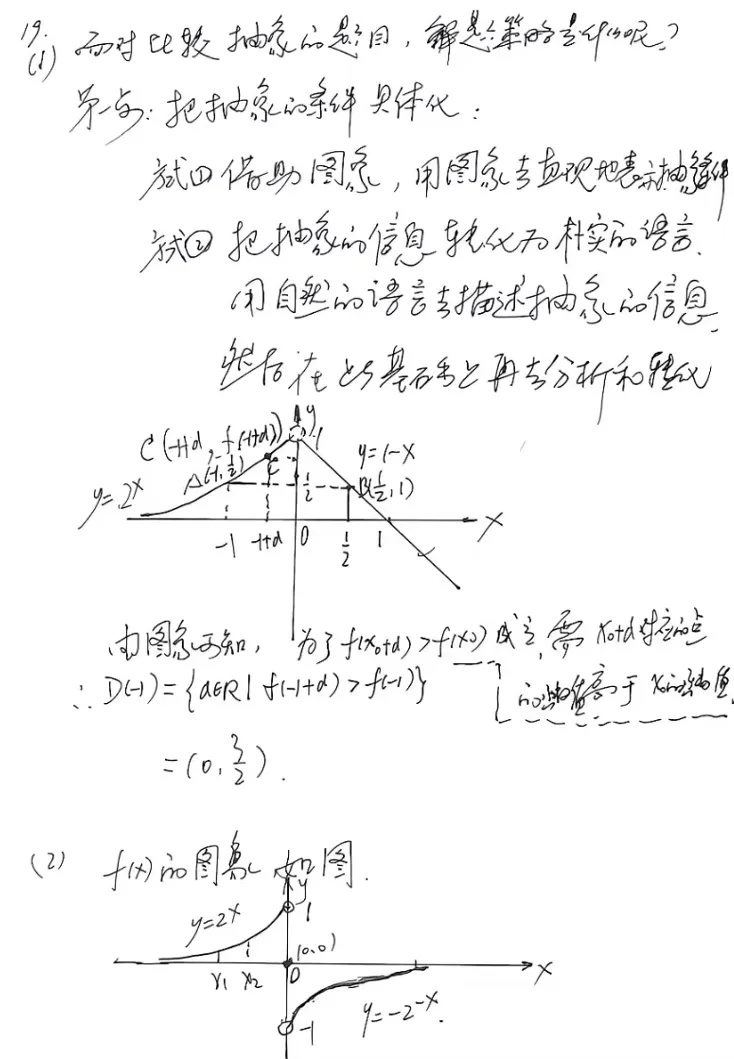 19.
(1) 面对比较抽象的题目，解题策略是什么呢？
第一步：把抽象的条件具体化：
方式① 借助图象，用图象去直观地表示抽象条件
方式② 把抽象的信息转化为朴实的语言.
用自然的语言去描述抽象的信息.
然后在此基础上再去分析和转化
C(-1+d, f(-1+d)) y 1
A(-1, 1/2) C 1/2 y=1-x
y=2^x B(1/2, 1)
-1 -1+d 0 1/2 1 x
由图象可知，为了f(x₀+d)>f(x₀)成立，需x₀+d对应的点
的纵值高于x₀的纵值.
∴ D(-1)={d∈R | f(-1+d)>f(-1)}
=(0, 3/2).
(2) f(x)的图象如图.
y
y=2^x 1
(0,0)
x₁ x₂ 0 x
-1 y=-2^-x.